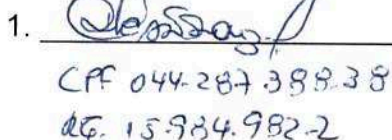 1.
CPF 044.287.388.38
RG. 15.984.982-2